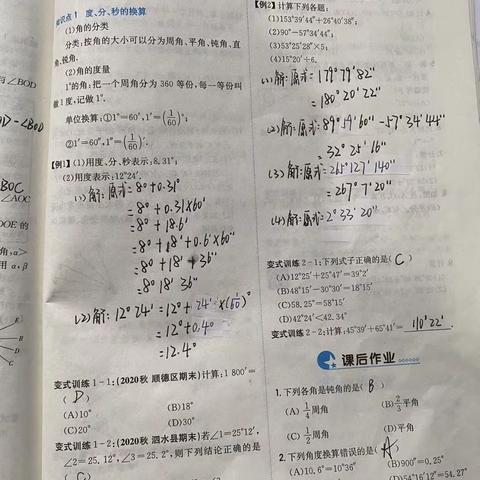 知识点1 度、分、秒的换算
(1)角的分类
分类:按角的大小可以分为周角、平角、钝角、直
角、锐角.
(2)角的度量
1°的角:把一个周角分为 360 等份,每一等份叫
做1度,记做1°.
单位换算:①1°=60′,1′=(1/60)°;
②1′=60″,1″=(1/60)′.
【例1】(1)用度、分、秒表示:8.31°;
(2)用度表示:12°24′.
(1)解:原式=8°+0.31°
=8°+0.31×60′
=8°+18.6′
=8°+18′+0.6′×60″
=8°+18′+36″
=8°18′36″
(2)解:12°24′=12°+24′×(1/60)°
=12°+0.4°
=12.4°
变式训练 1-1:(2020秋 顺德区期末)计算:1 800′=
( D )
(A)10° (B)18°
(C)20° (D)30°
变式训练 1-2:(2020秋 泗水县期末)若∠1=25°12′,
∠2=25.12°,∠3=25.2°,则下列结论正确的是
【例2】计算下列各题:
(1)153°39′44″+26°40′38″;
(2)90°-57°34′44″;
(3)53°25′28″×5;
(4)15°20′÷6.
(1)解:原式=179°79′82″
=180°20′22″
(2)解:原式=89°59′60″-57°34′44″
=32°25′16″
(3)解:原式=265°127′140″
=267°7′20″
(4)解:原式=2°33′20″
变式训练 2-1:下列式子正确的是( C )
(A)12°25′+25°47′=39°2′
(B)48°15′-30°30′=18°15′
(C)58.25°=58°15′
(D)42°24′<42.34°
变式训练 2-2:计算:45°39′+65°41′= 110°22′ .
课后作业
1.下列各角是钝角的是( B )
(A)1/4周角 (B)2/3平角
(C)1/2周角 (D)平角
2.下列角度换算错误的是( A )
(A)10.6°=10°36″ (B)900″=0.25°
(D)54°16′12″=54.27°
与 ∠BOD
∠BOD
BOC
∠AOC
DOE 的
角,α>
用 α,β
E
D
C
B